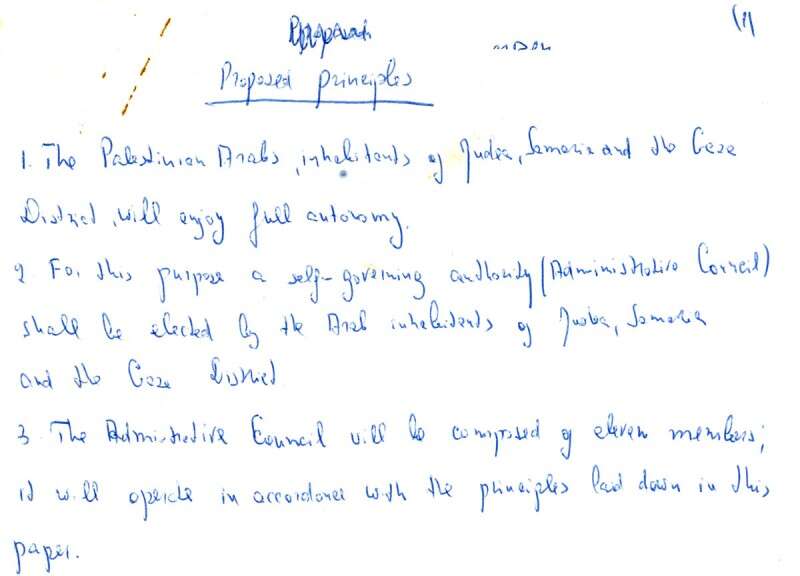 (1)
Proposed principles
1. The Palestinian Arabs, inhabitants of Judea, Samaria and the Gaza
District, will enjoy full autonomy.
2. For this purpose a self-governing authority (Administrative Council)
shall be elected by the Arab inhabitants of Judea, Samaria
and the Gaza District
3. The Administrative Council will be composed of eleven members;
it will operate in accordance with the principles laid down in this
paper.